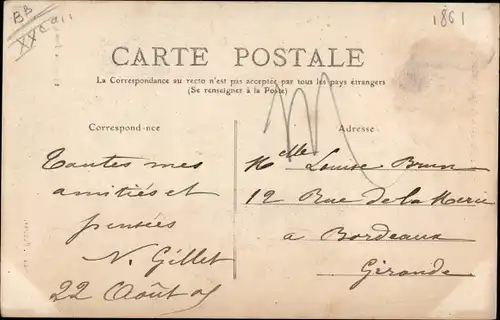 BB
1861
CARTE POSTALE
La Correspondance au recto n'est pas acceptée par tous les pays étrangers
(Se renseigner à la Poste)
Correspondance
Adresse
Toutes mes
amitiés et
pensées
N. Gillet
22 Août 05
Melle Louise Brun
12 Rue de la
a Bordeaux
Gironde